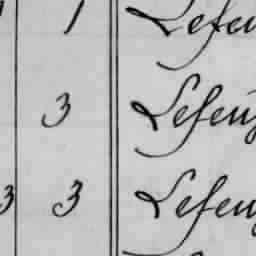 1 Lefeu
3 Lefeu
3 3 Lefeu